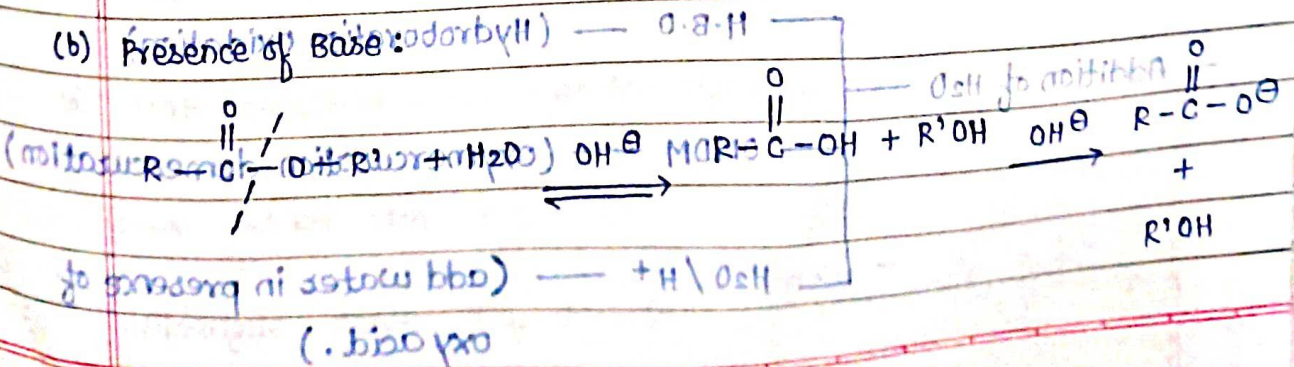 (b) Presence of Base :
O O O
|| || ||
R-C-O-R' + H2O OH⊖ R-C-OH + R'OH OH⊖ R-C-O⊖
+
R'OH